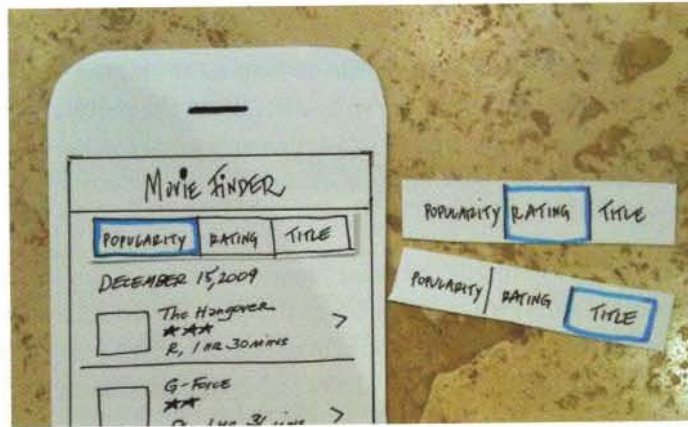 Movie Finder
POPULARITY RATING TITLE
DECEMBER 15, 2009
The Hangover
★★★
R, 1 HR 30 MINS
>
G-Force
★★
1 HR 31 mins
>
POPULARITY RATING TITLE
POPULARITY RATING TITLE